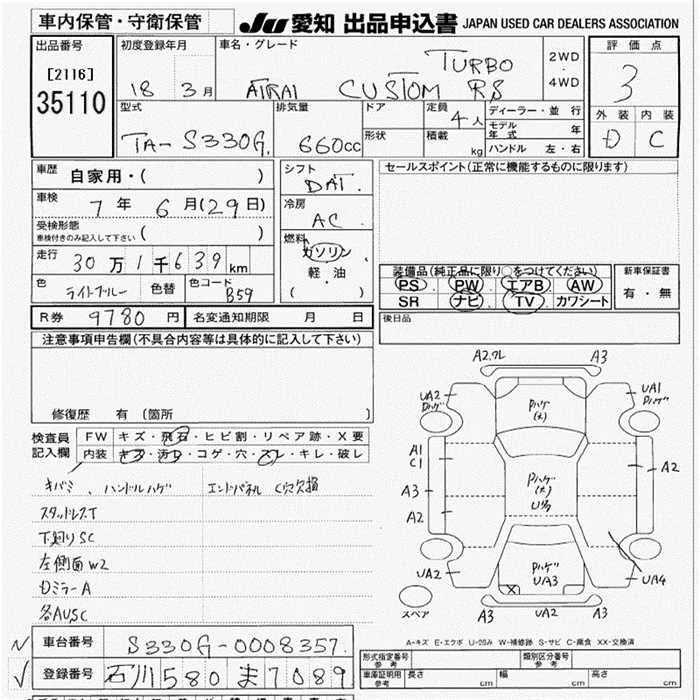 車内保管・守衛保管
JU 愛知 出品申込書 JAPAN USED CAR DEALERS ASSOCIATION
出品番号
[2116]
35110
初度登録年月
18 3月
車名・グレード
TURBO
ATRAI CUSTOM RS
2WD
・
4WD
評価点
3
外装 内装
D C
型式
TA-S330G
排気量
660cc
ドア
形状
定員 4人
積載 kg
ディーラー・並行
モデル年式 年
ハンドル 左・右
車歴
自家用・( )
車検
7年 6月(29日)
受検形態
車検付きのみ記入して下さい ( )
走行
30万1千639km
色 ライトブルー 色替 色コード B59
シフト
DAT
冷房
AC
燃料
ガソリン
軽・油
( )
セールスポイント(正常に機能するものに限ります)
装備品(純正品に限り○をつけてください)
PS PW エアB AW
SR ナビ TV カワシート
新車保証書
有・無
後日品
R券 9780円 名変通知期限 月 日
注意事項申告欄(不具合内容等は具体的に記入して下さい)
修復歴 有(箇所 )
検査員
記入欄
FW キズ・飛石・ヒビ割・リペア跡・X要
内装 キズ・汚レ・コゲ・穴・スレ・キレ・破レ
キバミ、ハンドルハゲ エンドパネル C穴欠損
スタッドレスT
下廻りSC
左側面W2
DミラーA
各AUSC
A2.ワレ A3
UA2
Dハゲ
Pハゲ
(大)
UA1
Dハゲ
A1
C1
A2
A3
Pハゲ
(大)
U多
A2
UA2
Pハゲ
UA3
X
UA4
スペア
A3 UA2 A3
A-キズ E-エクボ U-凹み W-補修跡 S-サビ C-腐食 XX-交換済
車台番号 S330G-0008357
登録番号 石川 580 ま 7089
形式指定番号
参考
類別区分番号
参考
車庫証明用
参考
長さ cm 幅 cm 高さ cm